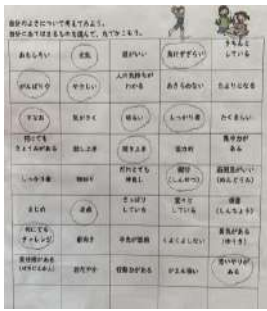 自分のよさについて考えてみよう。
自分にあてはまるものを選んで、丸でかこもう。
おもしろい 元気 頭がいい 負けずぎらい きちんと
している
がんばりや やさしい 人の気持ちが
わかる あきらめない たよりになる
すなお 気がきく 明るい しっかり者 たくましい
何にでも
きょうみがある 話し上手 聞き上手 協力的 集中力が
ある
しっかり者 だれとでも
仲良し 親切
(しんせつ) 面倒見がいい
(めんどうみ)
まじめ 正直 さっぱり
している 堂々と
している 慎重
(しんちょう)
何にでも
チャレンジ 前向き くよくよしない 勇気がある
(ゆうき)
責任感がある
(せきにんかん) おだやか 行動力がある がまん強い 思いやりが
ある